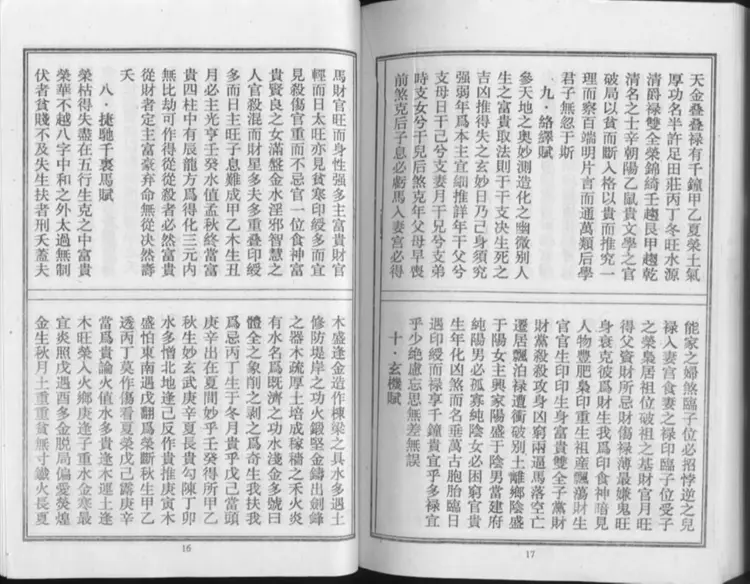 馬財官旺而身性强多主富貴財官
輕而日太旺亦見貧寒印綬多而宜
見殺傷官重而不忌官一位食神富
貴賢良之女滿盤金水淫邪智慧之
人官殺混而財星多夫多重叠印綬
多而日主旺子息難成甲乙木生丑
月必主光亨壬癸水值孟秋終當富
貴四柱中有辰龍方爲得化三元内
無比劫可作得從從殺者必然富貴
從財者定主富豪弃命無從决然壽
夭
八·捷馳千裏馬賦
榮枯得失盡在五行生克之中富貴
榮華不越八字中和之外太過無制
伏者貧賤不及失生扶者刑夭蓋夫
木盛逢金造作棟梁之具水多遇土
修防堤岸之功火鍛堅金鑄出劍鋒
之器木疏厚土培成稼穡之禾火炎
有水名爲既濟之功水淺金多號曰
體全之象削之剥之爲奇生我扶我
爲忌丙丁生于冬月貴乎戊己當頭
庚辛出在夏間妙乎壬癸得所甲乙
秋生妙玄武庚辛夏長貴勾陳丁卯
水多憎北地逢己反作貴推庚寅木
盛怕東南遇戊翻爲榮斷秋生甲乙
透丙丁莫作傷看夏榮戊己露庚辛
當爲貴論火值水多貴逢木運土逢
木旺榮入火鄉庚逢子重水金寒最
宜炎照戊遇酉多金脱局偏愛熒煌
金生秋月土重重貧無寸鐵火長夏
16
天金叠叠禄有千鐘甲乙夏榮土氣
厚功名半許足田莊丙丁冬旺水源
清爵禄雙全榮錦綺壬趨艮甲趨乾
清名之士辛朝陽乙鼠貴文學之官
破局以貧而斷入格以貴而推究一
理而察百端明片言而通萬類后學
君子無忽于斯
九·絡繹賦
參天地之奥妙測造化之幽微别人
生之富貴取法則于干支决生死之
吉凶推得失之玄妙日乃己身須究
强弱年爲本主宜細推詳年干父兮
支母日干己兮支妻月干兄兮支弟
時支女兮干兒后煞克年父母早喪
前煞克后子息必虧馬入妻宮必得
能家之婦煞臨子位必招悖逆之兒
禄入妻宮食妻之禄印臨子位受子
之榮梟居祖位破祖之基財官月旺
得父資財所忌財傷禄薄最嫌鬼旺
身衰克彼爲財生我爲印食神暗見
人物豐肥梟印重生祖産飄蕩財生
官官生印印生身富貴雙全子黨財
財黨殺殺攻身凶窮兩逼馬落空亡
遷居飄泊禄遭衝破别土離鄉陰盛
于陽女主興家陽盛于陰男當建府
純陽男必孤寡純陰女必困窮官貴
生年化凶煞而名垂萬古胞胎臨日
遇印綬而禄享千鐘貴宜乎多禄宜
乎少絶慮忘思無差無誤
十·玄機賦
17